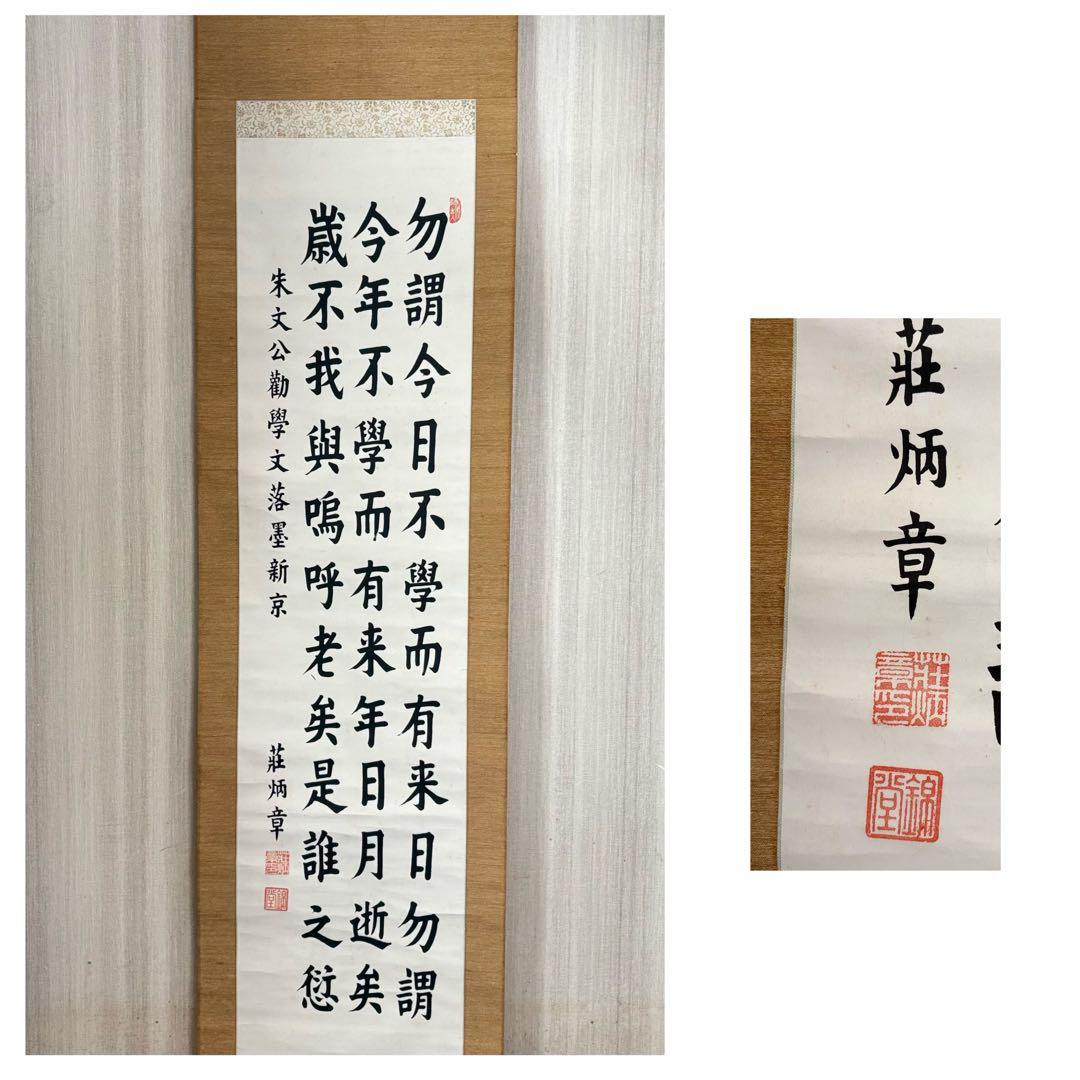 勿謂今日不學而有来日勿謂
今年不學而有来年日月逝矣
歲不我與嗚呼老矣是誰之愆
朱文公勸學文落墨新京
莊炳章
莊炳章印
錦堂
莊炳章
莊炳章印
錦堂